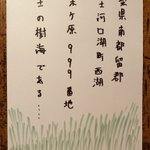 県南部留郡
士河口湖町西湖
木ヶ原999番地
士の樹海である....